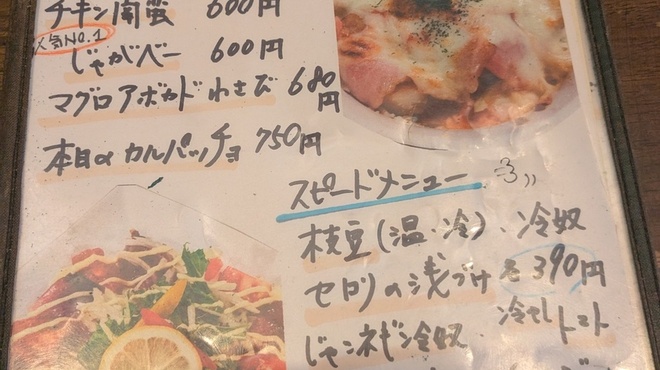 チキン南蛮 600円
人気NO.1
じゃがべー 600円
マグロアボカドわさび 680円
本日のカルパッチョ 750円
スピードメニュー
枝豆(温・冷)、冷奴
セロリの浅づけ 各390円
じゃこネギ冷奴、冷やしトマト